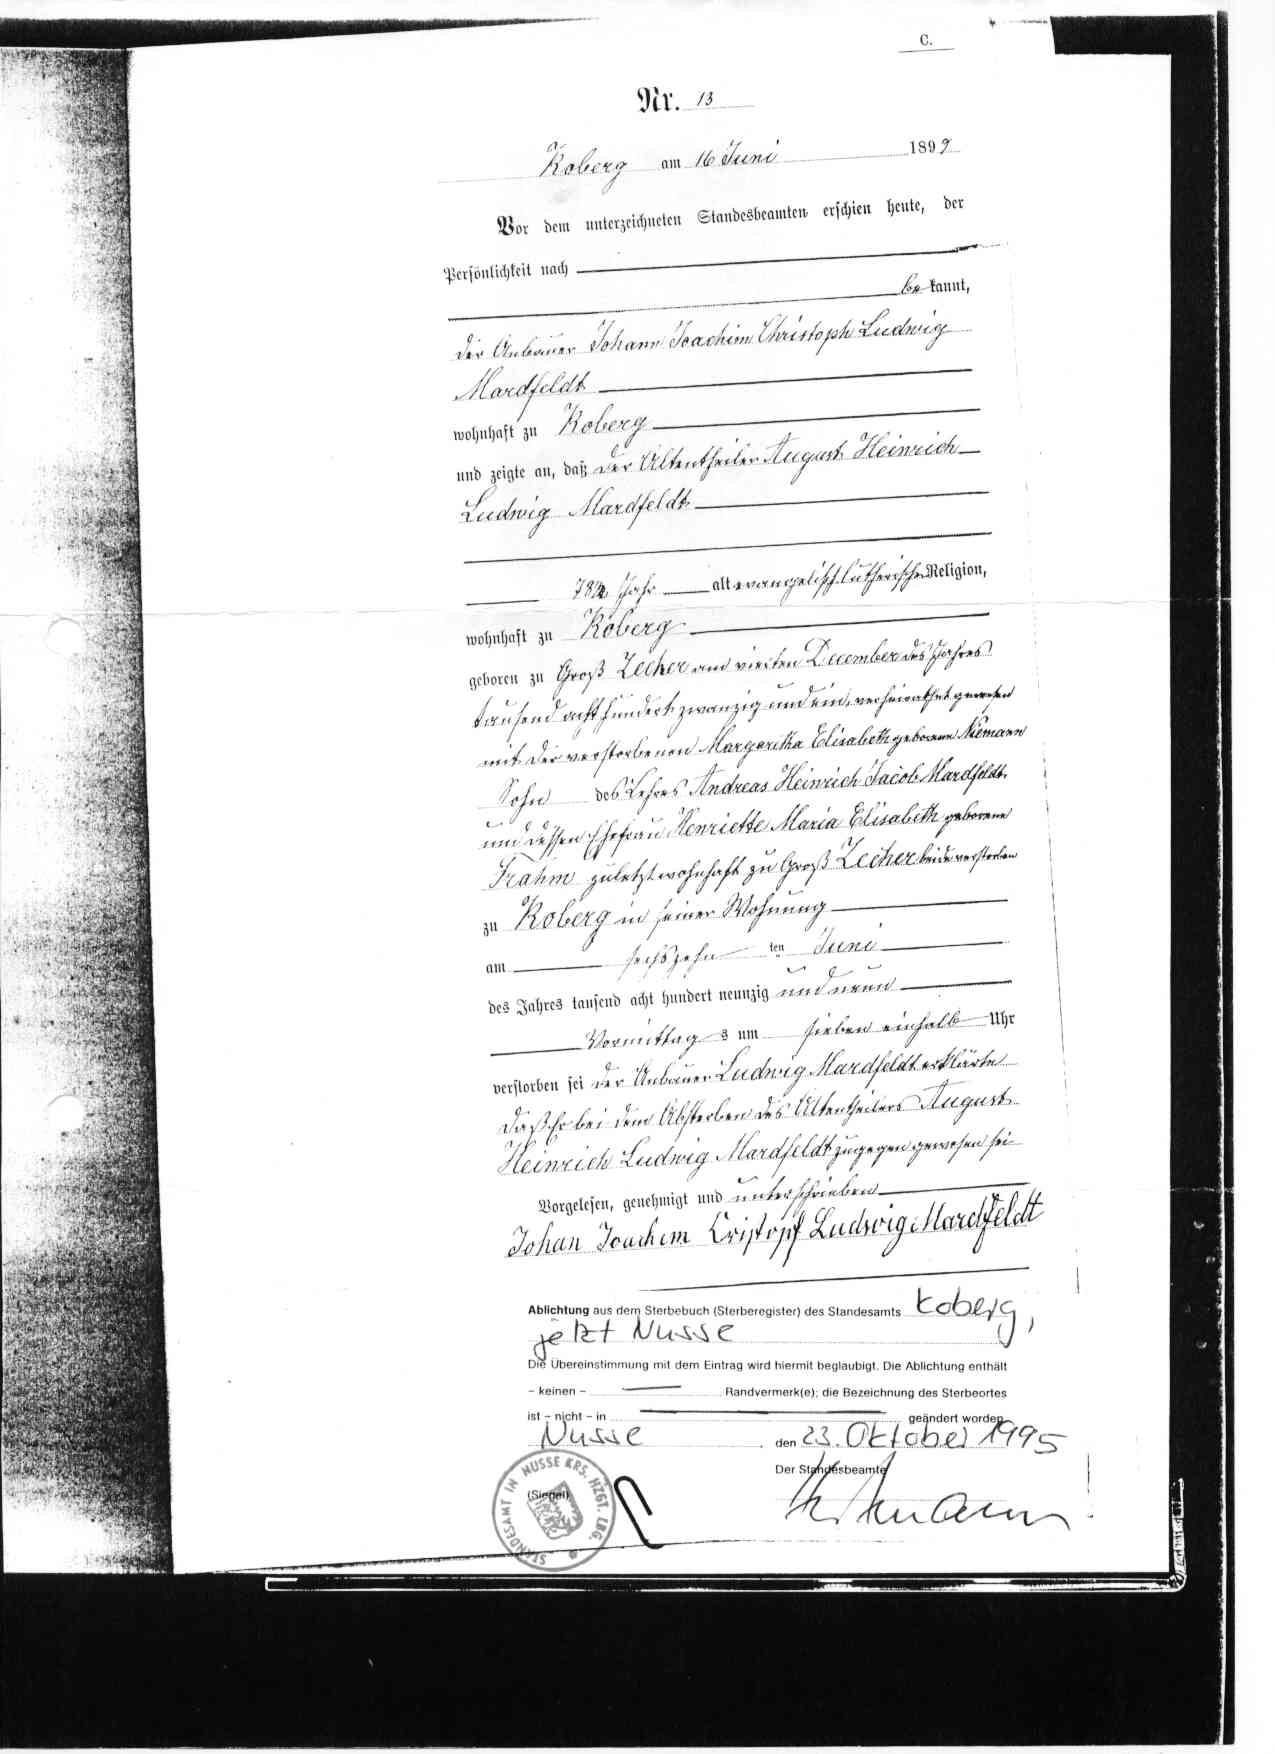 C.
Nr. 13
Koberg am 16 Juni 1899
Vor dem unterzeichneten Standesbeamten erschien heute, der
Persönlichkeit nach
bekannt,
der Anbauer Johann Joachim Christoph Ludwig
Mardfeldt
wohnhaft zu Koberg
und zeigte an, daß der Altentheiler August Heinrich
Ludwig Mardfeldt
Jahr alt evangelisch lutherischer Religion,
wohnhaft zu Koberg
geboren zu Groß Zecher am vierten December des Jahres
tausend acht hundert zwanzig und ein, verheirathet gewesen
mit der verstorbenen Margaretha Elisabeth geborene Niemann
Sohn des Andreas Heinrich Jacob Mardfeldt
und dessen Ehefrau Henriette Maria Elisabeth geborene
Frahm zuletzt wohnhaft zu Groß Zecher beide verstorben
zu Koberg in seiner Wohnung
am sechszehn ten Juni
des Jahres tausend acht hundert neunzig und neun
Vormittags um sieben einhalb Uhr
verstorben sei der Anbauer Ludwig Mardfeldt erklärte
daß Er bei dem Absterben des Altentheilers August
Heinrich Ludwig Mardfeldt zugegen gewesen sei
Vorgelesen, genehmigt und unterschrieben
Johan Joachim Cristopf Ludwig Mardfeldt
Ablichtung aus dem Sterbebuch (Sterberegister) des Standesamts Koberg,
jetzt Nusse
Die Übereinstimmung mit dem Eintrag wird hiermit beglaubigt. Die Ablichtung enthält
– keinen – Randvermerk(e); die Bezeichnung des Sterbeortes
ist – nicht – in geändert worden
Nusse den 23. Oktober 1995
Der Standesbeamte
(Siegel)
STANDESAMT IN NUSSE KRS. HZGT. LBG.